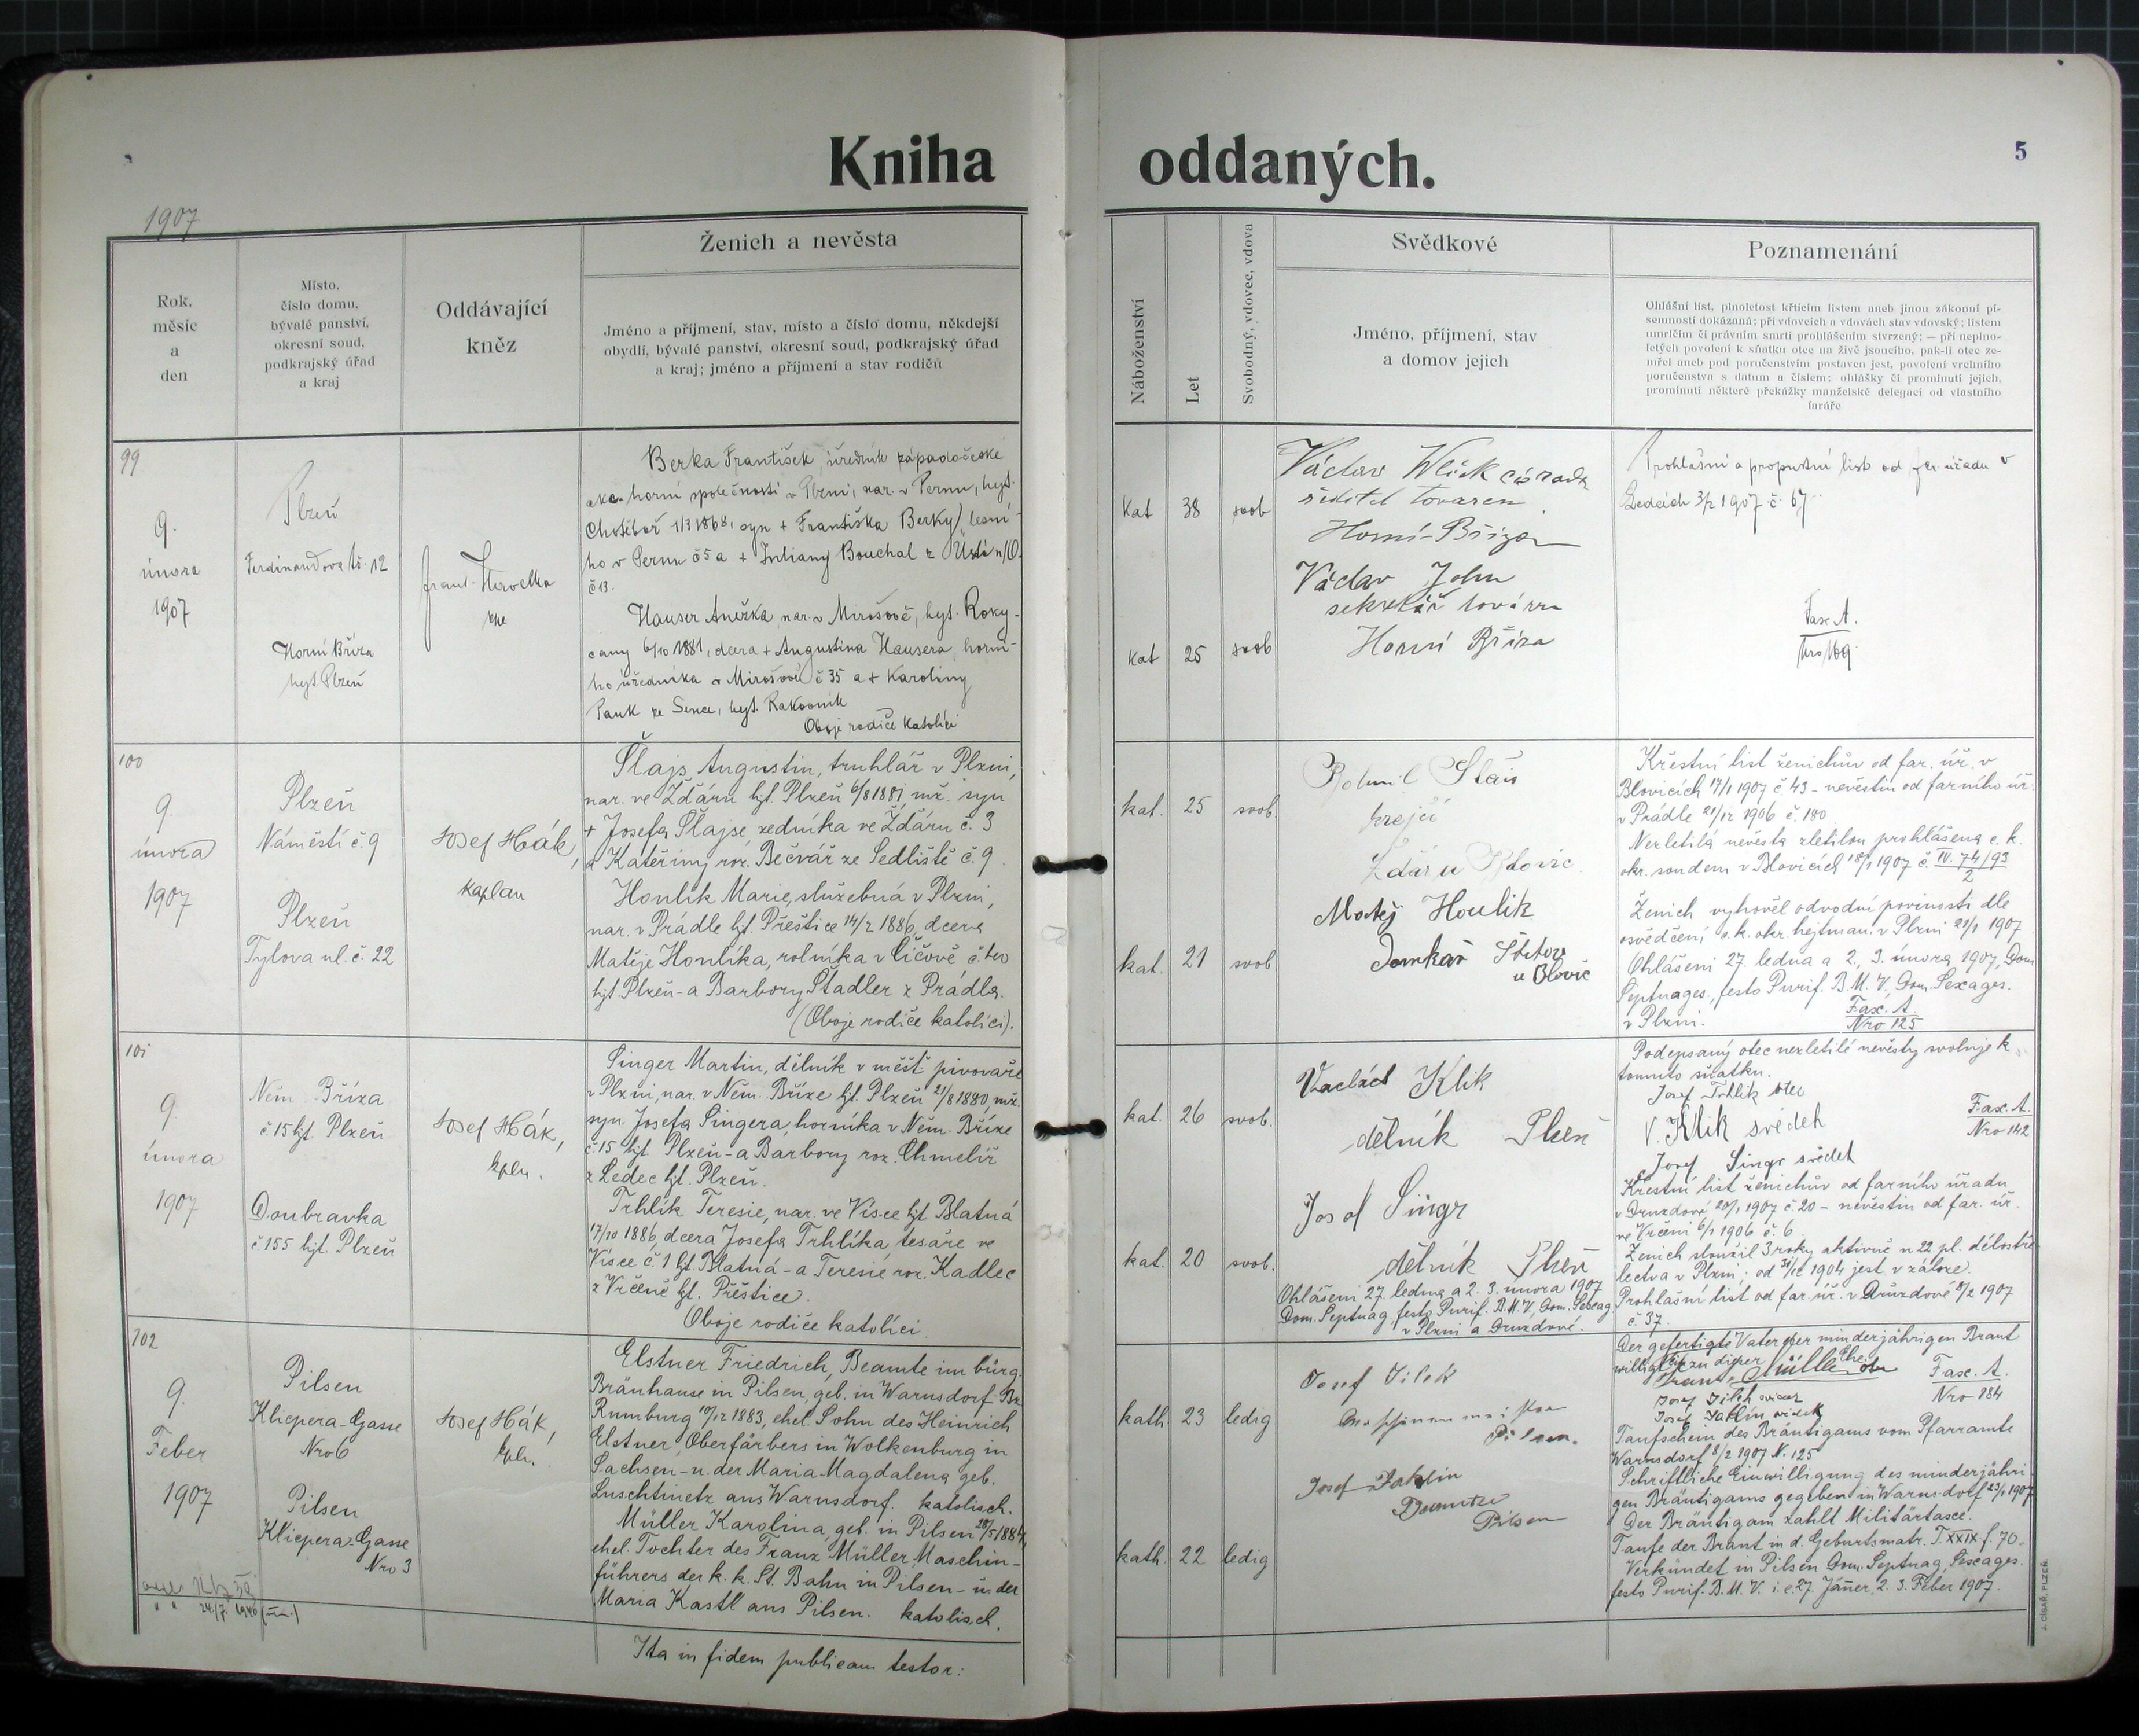 Kniha oddaných.
5
1907
Rok,
měsíc
a
den
Místo,
číslo domu,
bývalé panství,
okresní soud,
podkrajský úřad
a kraj
Oddávající
kněz
Ženich a nevěsta
Jméno a příjmení, stav, místo a číslo domu, někdejší
obydlí, bývalé panství, okresní soud, podkrajský úřad
a kraj; jméno a příjmení a stav rodičů
Náboženství
Let
Svobodný, vdovec, vdova
Svědkové
Jméno, příjmení, stav
a domov jejich
Poznamenání
Ohlášní list, plnoletost křticím listem aneb jinou zákonní pí-
semností dokázaná; při vdovcích a vdovách stav vdovský; listem
umrlčím či právním smrti prohlášením stvrzený; — při neplno-
letých povolení k sňatku otce na živě jsoucího, pak-li otec ze-
mřel aneb pod poručenstvím postaven jest, povolení vrchního
poručenstva s datum a číslem; ohlášky či prominutí jejich,
prominutí některé překážky manželské delegací od vlastního
faráře
99
9.
února
1907
Plzeň
Ferdinandova tř. 12
Horní Bříza
hejt. Plzeň
Berka František, úředník západočeské
akc. horní společnosti v Plzni, nar. v Pernu, hejt.
Chotěboř 1/3 1868, syn + Františka Berky, lesní-
ho v Pernu č 5 a + Juliany Bouchal z Ústí n/O.
č 13.
Hauser Anežka, nar. v Mirošově, hejt. Roky-
cany 6/10 1881, dcera + Augustina Hausera, horní-
ho úředníka v Mirošově č 35 a + Karoliny
Pauk ze Sence, hejt. Rakovník
Oboje rodiče katolíci
kat 38 svob
kat 25 svob
ředitel továren
Horní-Bříza
Václav John
sekretář továren
Horní Bříza
Prohlášní a propustní list od far. úřadu v
Ledcích 3/2 1907 č. 67
Fasc. A.
Nro 109
100
9.
února
1907
Plzeň
Náměstí č. 9
Plzeň
Tylova ul. č. 22
Josef Hák,
kaplan
Šlajs Augustin, truhlář v Plzni,
nar. ve Ždáru hjt. Plzeň 6/8 1881, mž. syn
+ Josefa Šlajse zedníka ve Ždáru č. 3
a Kateřiny roz. Bečvář ze Sedliště č. 9.
Houlík Marie, služebná v Plzni,
nar. v Prádle hjt. Přeštice 14/2 1886, dcera
Matěje Houlíka, rolníka v
hjt. Plzeň - a Barbory Stadler z Prádla.
(Oboje rodiče katolíci).
kat. 25 svob.
kat. 21 svob
krejčí
Matěj Houlik
Domkař
Křestní list ženichův od far. úř. v
Blovicích 17/1 1907 č 43 - nevěstin od farního úř.
v Prádle 21/12 1906 č. 180
Nezletilá nevěsta zletilou prohlášena c. k.
okr. soudem v Blovicích 18/1 1907 č. IV. 74/93
2
Ženich vyhověl odvodní povinosti dle
osvědčení c. k. okr. hejtman. v Plzni 21/1 1907
Ohlášeni 27. ledna a 2., 3. února 1907, Dom.
Septuages., festo Purif. B. M. V., Dom. Sexages.
v Plzni.
Fasc. A.
Nro 125
101
9.
února
1907
Něm. Bříza
č. 15 hjt. Plzeň
Doubravka
č. 155 hjt. Plzeň
Josef Hák,
kpln.
Singer Martin, dělník v měšť. pivovaře
v Plzni, nar. v Něm. Bříze hjt. Plzeň 21/8 1880, mž.
syn Josefa Singera, horníka v Něm. Bříze
č. 15 hjt. Plzeň - a Barbory roz. Chmelíř
z Ledec hjt. Plzeň.
Trhlík Teresie, nar. ve Vísce hjt. Blatná
17/10 1886, dcera Josefa Trhlíka tesaře ve
Vísce č. 1 hjt. Blatná - a Teresie roz. Kadlec
z Vrčeně hjt. Přeštice.
Oboje rodiče katolíci.
kat. 26 svob.
kat. 20 svob.
Klik
dělník Plzeň
Josef Singr
dělník Plzeň
Ohlášeni 27. ledna a 2. 3. února 1907
Dom. Septuag. festo Purif. B. M. V. Dom. Sexag.
v Plzni a Druzdové.
Podepsaný otec nezletilé nevěsty svoluje k
tomuto sňatku.
Josef Trhlík otec
V. Klik svědek
Josef Singr svědek
Fasc. A.
Nro 142
Křestní list ženichův od farního úřadu
v Druzdové 20/1 1907 č. 20 - nevěstin od far. úř.
ve Vrčeni 6/1 1906 č. 6.
Ženich sloužil 3 roky aktivně u 22 pl. dělostře-
lectva v Plzni; od 31/12 1904 jest v záloze.
Prohlášní list od far. úř. v Druzdové 8/2 1907
č. 37.
102
9.
Feber
1907
Pilsen
Klicpera-Gasse
Nro 6
Pilsen
Klicpera-Gasse
Nro 3
Josef Hák,
kpln.
Elstner Friedrich, Beamte im bürg.
Bräuhause in Pilsen, geb. in Warnsdorf Bz
Rumburg 10/12 1883, ehel. Sohn des Heinrich
Elstner, Oberfärbers in Wolkenburg in
Sachsen - u. der Maria Magdalena geb.
Luschtinetz aus Warnsdorf. katolisch.
Müller Karolina, geb. in Pilsen 28/5 1884,
ehel. Tochter des Franz Müller, Maschin-
führers der k. k. St. Bahn in Pilsen - u. der
Maria Kastl aus Pilsen. katolisch.
kath. 23 ledig
kath. 22 ledig
Josef Jilek
Pilsen.
Josef
Beamter
Pilsen
Der gefertigte Vater der minderjährigen Braut
willigt ein zu dieser Ehe
Franz Müller
Fasc. A.
Nro 184
Taufschein des Bräutigams vom Pfarramte
Warnsdorf 8/2 1907 N. 125
Schriftliche Einwilligung des minderjähri-
gen Bräutigams gegeben in Warnsdorf 23/1 1907
Der Bräutigam zahlt Militärtaxe.
Taufe der Braut in d. Geburtsmatr. T. XXIX f. 70.
Verkündet in Pilsen Dom. Septuag., Sexages.
festo Purif. B. M. V. i. e. 27. Jäner, 2. 3. Feber 1907.
Ita in fidem publicam testor:
J. CÍSAŘ, PLZEŇ.